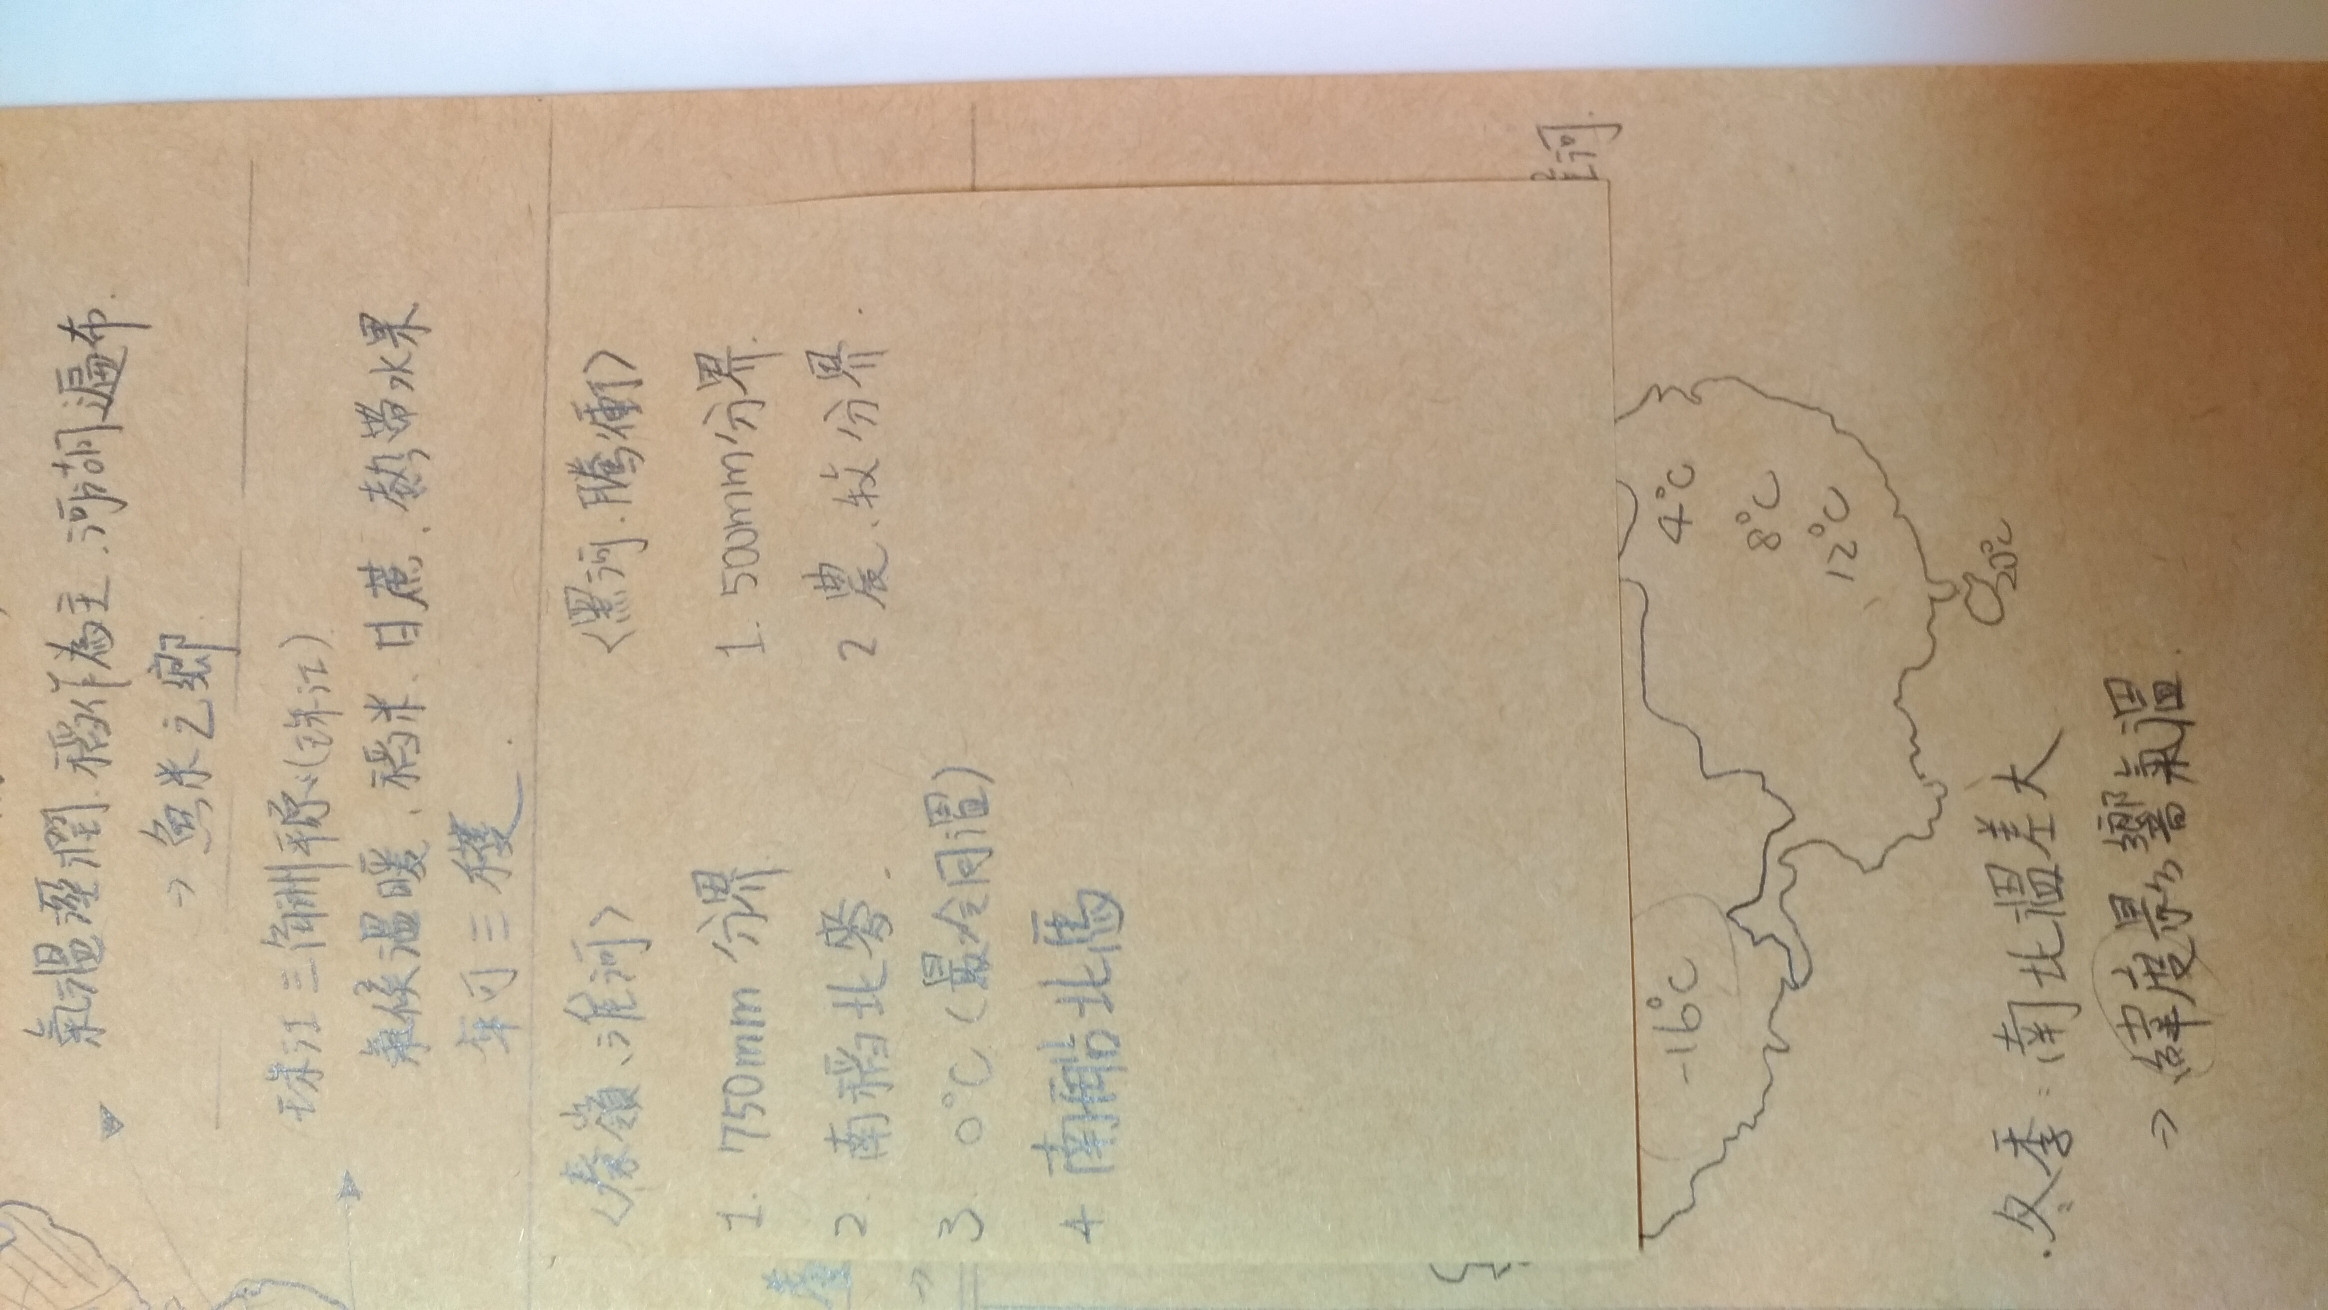 氣溫溼潤.稻作為主.河湖遍布.
→ 魚米之鄉
珠江三角洲平原(珠江)
氣候溫暖、稻米、甘蔗、熱帶水果
年可三穫.
〈秦嶺、淮河〉
1. 750mm 分界
2. 南稻北麥.
3. 0°C (最冷同溫)
4 南船北馬
〈黑河.騰衝〉
1. 500mm分界.
2 農、牧分界.
河.
-16°C
4°C
8°C
12°C
20°C
.冬季:南北溫差大
→ 緯度影響氣溫.